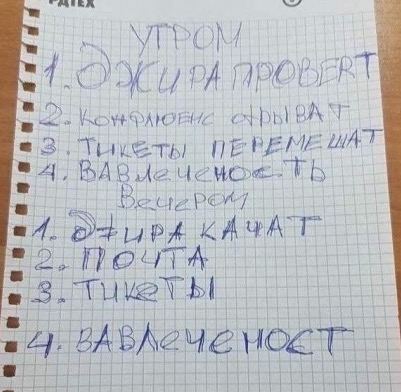 РАТЕХ
УТРОМ
1. ДЖИРА ПРОВЕRТ
2. КОНФЛЮЕНС ОТРЫВАТ
3. ТИКЕТЫ ПЕРЕМЕШАТ
4. ВАВлечеНОСТЬ
Вечером
1. ДЖИРА КАЧАТ
2. ПОЧТА
3. ТИКеТЫ
4. ВАВЛеченОСТ